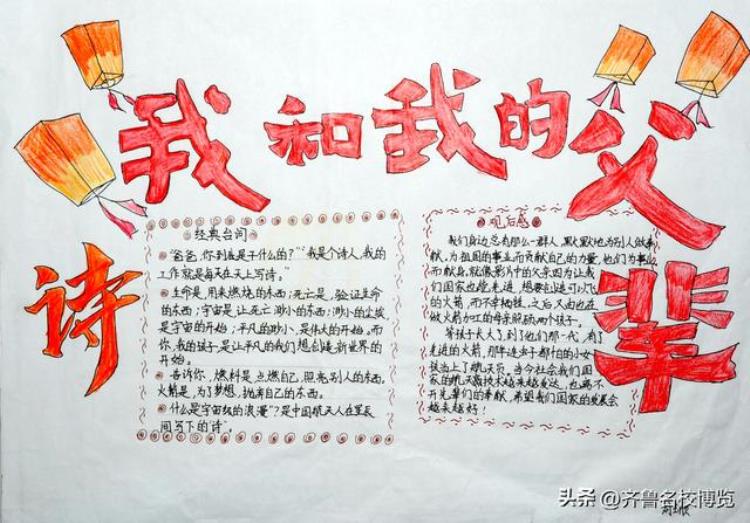 我和我的父辈
诗
经典台词
"爸爸,你到底是干什么的?""我是个诗人,我的
工作就是每天在天上写诗。"
生命是,用来燃烧的东西;死亡是,验证生命
的东西;宇宙是,让死亡渺小的东西;渺小的尘埃
是宇宙的开始;平凡的渺小,是伟大的开始。而
你,我的孩子,是让平凡的我们想创造新世界的
开始。
告诉你,燃料是点燃自己,照亮别人的东西。
火箭是,为了梦想,抛弃自己的东西。
什么是宇宙级的浪漫"?是中国航天人在星辰
间写下的诗"。
观后感
我们身边总有那么一群人,默默地为别人做奉
献,为祖国的事业而贡献自己的力量,他们为事业
而献身,就像影片中的父亲因为让我
们国家也能先进,想要制造可以飞
的火箭,而不幸牺牲。之后又由也在
做火箭加工的母亲照顾两个孩子。
等孩子长大了,到了他们那一代,有了
先进的火箭,那年连桌子都怕的小女
孩当上了航天员。当今社会我们国
家的航天科技越来越发达,也离不
开先辈们的奉献,希望我们国家的发展会
越来越好!
头条 @齐鲁名校博览